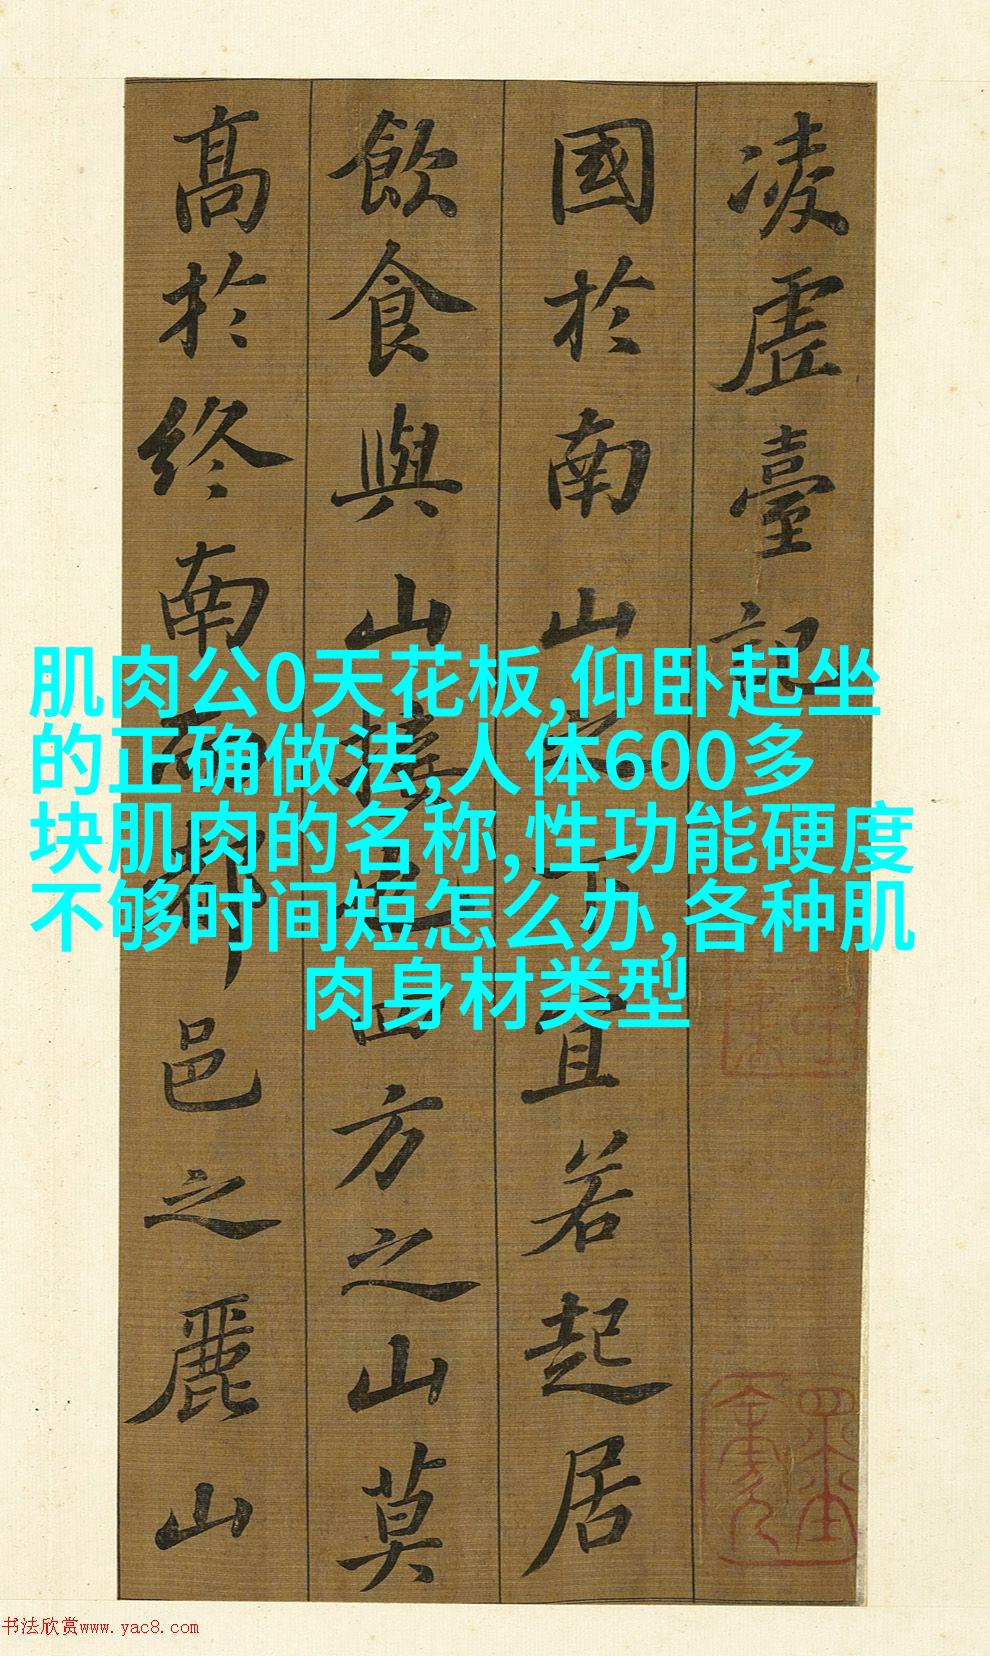 凌虛臺記
國於南山之下宜若起居
飲食與山接也四方之山莫
高於終南而都邑之麗山
肌肉公0天花板,仰卧起坐
的正确做法,人体600多
块肌肉的名称,性功能硬度
不够时间短怎么办,各种肌
肉身材类型
书法欣赏www.yac8.com